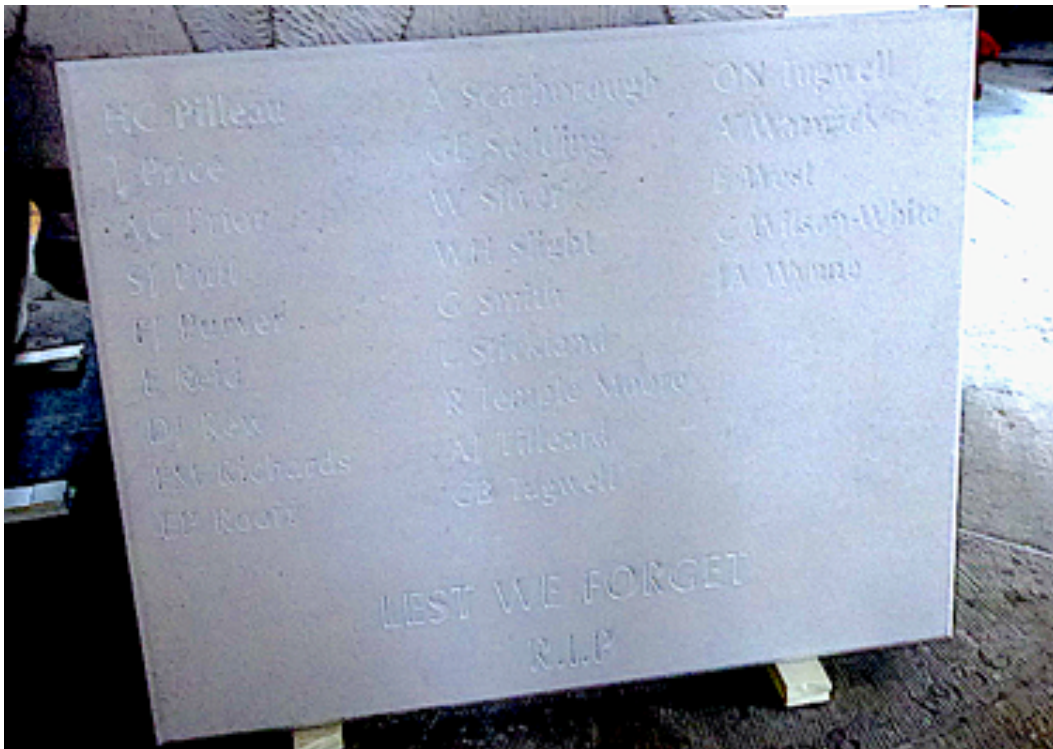 HC Pilleau
Price
AC Price
SJ Purt
Purver
Reid
DJ Rex
Richards
A Scarborough
Sedding
W Silver
WH Slight
G Smith
L Stickland
R Temple Moore
AJ Tilleard
GB Tugwell
ON Tugwell
Warwick
West
C Wilson-White
Wynne
LEST WE FORGET
R.I.P